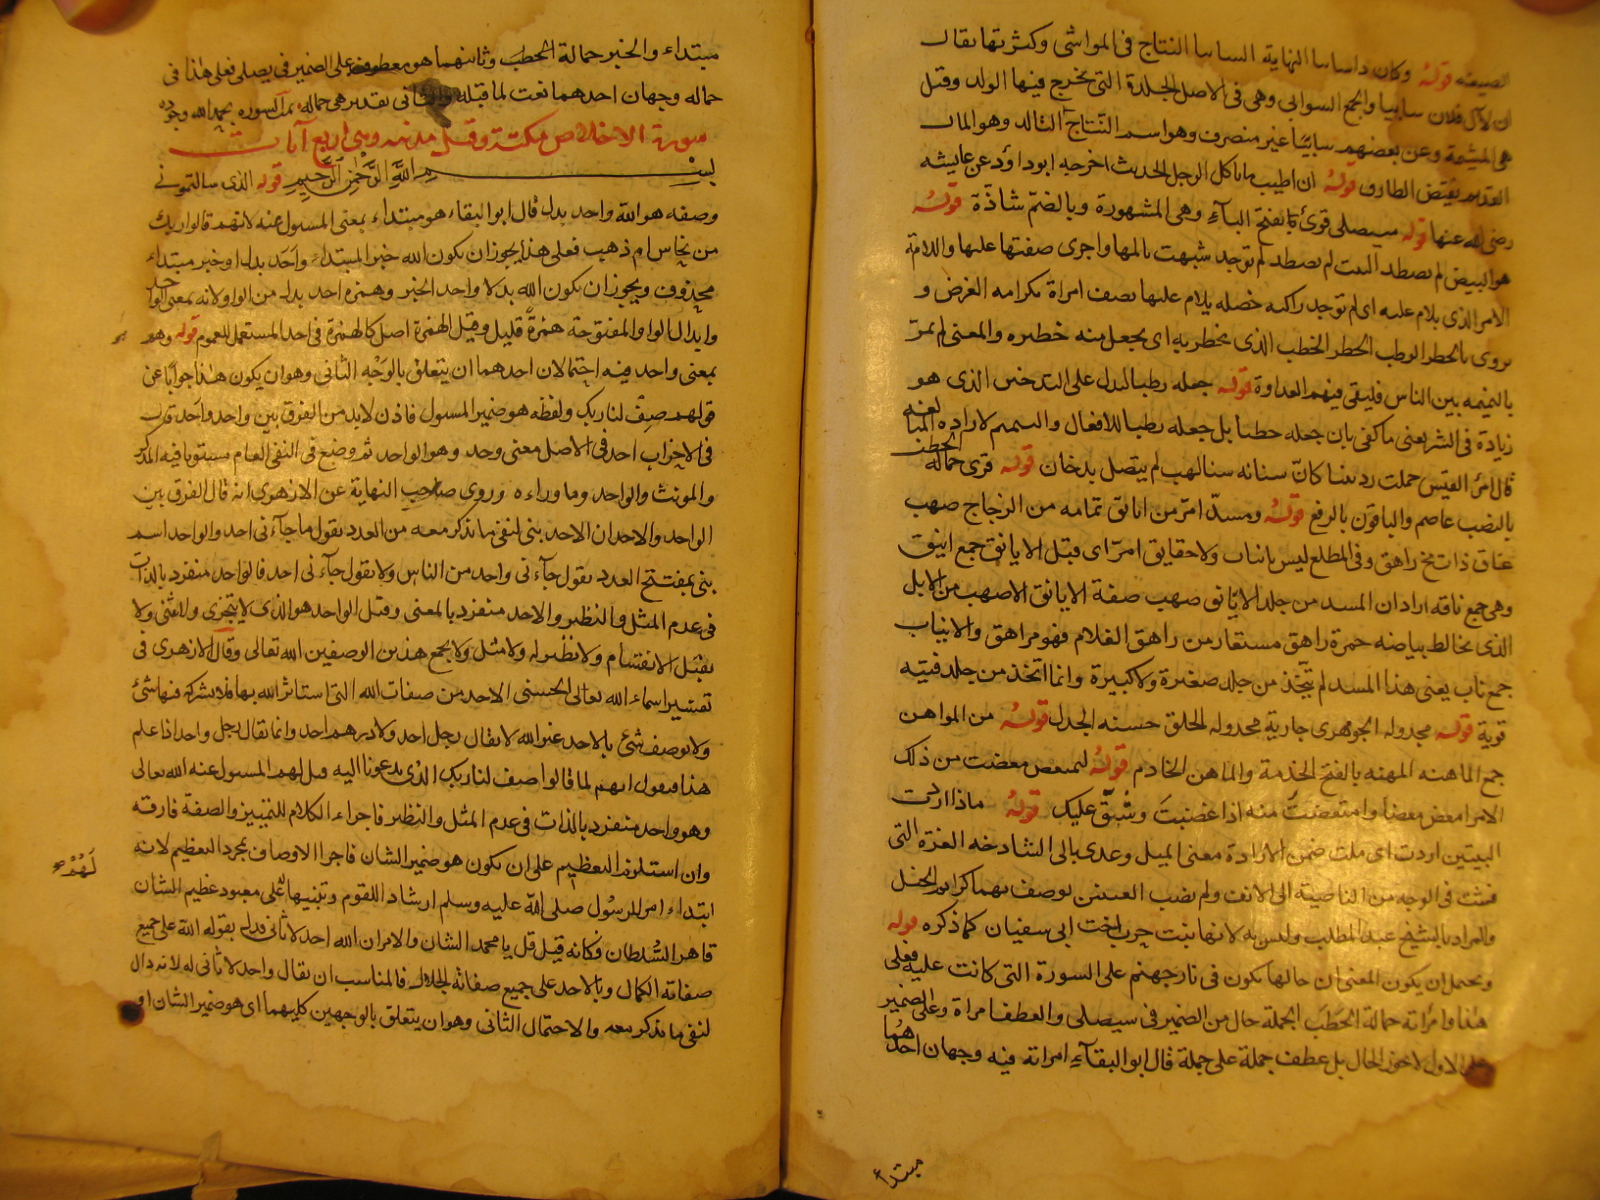 الضيعة قوله وكان ذا سابياء النهاية السابياء النتاج في المواشي وكثرتها يقال
ان لآل فلان سابياء والجمع السوابي وهي في الاصل الجلدة التي يخرج فيها الولد وقيل
هي المشيمة وعن بعضهم سابيا غير منصرف وهو اسم النتاج التالد وهو المال
القديم نقيض الطارف قوله ان اطيب ما ياكل الرجل الحديث اخرجه ابو داؤد عن عايشه
رضي الله عنها قوله سيصلى قرئ بفتح الياء وهي المشهورة وبالضم شاذة قوله
هو البيض لم تصطد البيت لم تصطد لم توجد شبهت بالمها واجرى صفتها عليها واللامة
الامر الذي يلام عليه اى لم توجد راكبه خصله يلام عليها يصف امراة بكرامه العرض و
يروى بالحطر الرطب الحطر الحطب الذي يحظر به اى يجعل منه حظيره والمعنى لم تمر
بالنميمه بين الناس فيلقي فيهم العداوة قوله جعله رطبا ليدل على التدخين الذي هو
زيادة في الشر يعني ما كفى بان جعله حطبا بل جعله رطبا للافعال والتتميم لارادة المبالغه
قال امرؤ القيس حملت ردينيا كان سنانه سنا لهب لم يتصل بدخان قوله قرئ حمالة الحطب
بالنصب عاصم والباقون بالرفع قوله ومسد امر من ايانق تمامه من الزجاج صهب
عتاق ذات مخ زاهق وفي المطلع ليس بانياب ولا حقايق امر اى فتل الايانق جمع اينق
وهي جمع ناقه اراد ان المسد من جلد الايانق صهب صفة الايانق الاصهب من الابل
الذي يخالط بياضه حمرة زاهق مستقار من راهق الغلام فهو مراهق والانياب
جمع ناب يعني هذا المسد لم يتخذ من جلد صغيرة ولا كبيرة وانما اتخذ من جلد فتيه
قوية قوله مجدوله الجوهري جارية مجدوله الخلق حسنه الجدل قوله من المواهن
جمع الماهنه المهنه بالفتح الخدمة والماهن الخادم قوله ليمتعض معضت من ذلك
الامر امعض معضا وامتعضت منه اذا غضبت وشق عليك قوله ماذا اردت
البيتين اردت اى ملت ضمن الارادة معنى الميل وعدى بالى الشادخه الغرة التي
فشت في الوجه من الناصية الى الانف ولم تصب العينين يوصف بهما كرام الخيل
والمراد بالشيخ عبد المطلب وليس به لانها بنت حرب اخت ابي سفيان كما ذكره قوله
ويحتمل ان يكون المعنى ان حالها تكون في نار جهنم على السورة التي كانت عليه فعلى
هذا وامراته حمالة الحطب الجملة حال من الضمير في سيصلى والعطف امراة وعلى الضمير
على الاول لا يجوز الحال بل عطف جملة على جملة قال ابو البقاء امراته فيه وجهان احدهما
مبتدأ
مبتداء والخبر حمالة الحطب وثانيهما هو معطوف على الضمير في يصلى فعلى هذا في
حماله وجهان احدهما نعت لما قبله والثاني تقديره هي حماله تمت السوره بحمد الله وجوده
سورة الاخلاص مكية وقيل مدنيه وهي اربع آيات
بسم الله الرحمن الرحيم قوله الذي سالتموني
وصفه هو الله واحد بدل قال ابو البقاء هو مبتداء بمعنى المسول عنه لانهم قالوا اربك
من نحاس ام ذهب فعلى هذا يجوز ان يكون الله خبر المبتداء واحد بدل او خبر مبتداء
محذوف ويجوز ان يكون الله بدلا واحد الخبر وهمزة احد بدل من الواو لانه بمعنى الواحد
وابدال الواو المفتوحة همزة قليل وقيل الهمزة اصل كالهمزة في احد المستعمل للعموم قوله وهو
بمعنى واحد فيه احتمالان احدهما ان يتعلق بالوجه الثاني وهو ان يكون هذا جوابا عن
قولهم صف لنا ربك ولفظه هو ضمير المسول فاذن لابد من الفرق بين واحد واحد قوله
في الاحزاب احد في الاصل معنى وحد وهو الواحد ثم وضع في النفي العام مستويا فيه المذكر
والمونث والواحد وما وراءه وروى صاحب النهاية عن الازهري انه قال الفرق بين
الواحد والاحد ان الاحد بني لنفي ما يذكر معه من العدد يقول ما جاءني احد والواحد اسم
بني بمفتتح العدد يقول جاءني واحد من الناس ولا يقول جاءني احد فالواحد منفرد بالذات
في عدم المثل والنظير والاحد منفرد بالمعنى وقيل الواحد هو الذي لا يتجزى ولا يثنى ولا
يقبل الانقسام ولا نظير له ولا مثل ولا يجمع هذين الوصفين الله تعالى وقال الازهري في
تفسير اسماء الله تعالى الحسنى الاحد من صفات الله التي استاثر الله بها فلا يشركه فيها شئ
ولا يوصف شئ بالاحد غير الله لا يقال رجل احد ولا درهم احد وانما يقال رجل واحد اذا علم
هذا فيقول انهم لما قالوا صف لنا ربك الذي تدعونا اليه قيل لهم المسول عنه الله تعالى
وهو واحد منفرد بالذات في عدم المثل والنظير فاجراء الكلام للتمييز والصفة فارقه
وان استلزمت التعظيم على ان يكون هو ضمير الشان فاجراء الاوصاف بمجرد التعظيم لانه
ابتداء امر للرسول صلى الله عليه وسلم ارشاد اللقوم وتنبيها لهم على معبود عظيم الشان
قاهر السلطان وكانه قيل قل يا محمد الشان والامر ان الله احد لا ثاني فدل بقوله الله على جميع
صفاته الكمال وبالاحد على جميع صفاته الجلال فالمناسب ان يقال واحد لا ثاني له لانه دال
لنفي ما يذكر معه والاحتمال الثاني وهو ان يتعلق بالوجهين كليهما اى هو ضمير الشان او